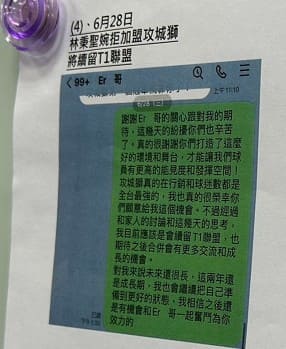 (4)、6月28日
林秉聖婉拒加盟攻城獅
將續留T1聯盟
99+ Er 哥
上午11:10
謝謝Er 哥的關心跟對我的期
待，這幾天的紛擾你們也辛苦
了。真的很謝謝你們打造了這麼
好的環境和舞台，才能讓我們球
員有更高的能見度和發揮空間！
攻城獅真的在行銷和球迷都是
全台最強的，我也真的很榮幸你
們願意給我這個機會。不過經過
和家人的討論和這幾天的思考，
我目前應該是會續留T1聯盟，也
期待之後合併會有更多交流和成
長的機會。
對我來說未來還很長，這兩年還
是成長期，我也會繼續把自己準
備到更好的狀態，我相信之後還
是有機會和Er 哥一起奮鬥為你
效力的
已讀